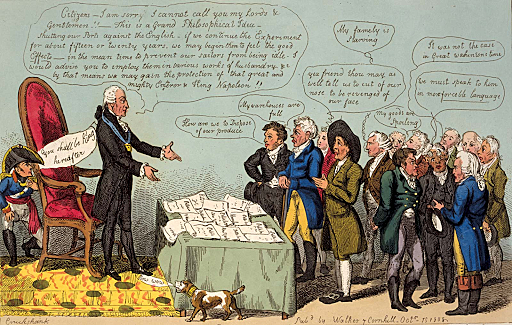 Citizen – I am sorry I cannot call you my Lords &
Gentlemen!! – This is a Grand Philosophical Idea –
shutting our Ports against the English – if we continue the Experiment
for about fifteen or twenty years, we may begin then to feel the good
Effects – in the mean time to prevent our sailors from being idle – I
would advise you to employ them in various works of husbandry &c
by that means we may gain the protection of that great and
mighty Emperor & King Napoleon!!
you shall be King
hereafter
How are we to Dispose
of our produce
My warehouses are
full
My famely is
Starving
you friend thou may as
well tell us to cut of our
nose to be revenged of
our face
My goods are
Spoiling
It was not the case
in Great Washintons time
We must speak to him
in more forceable language
Cruikshank
Pubd by Walker 7 Cornhill Octr 15 1808